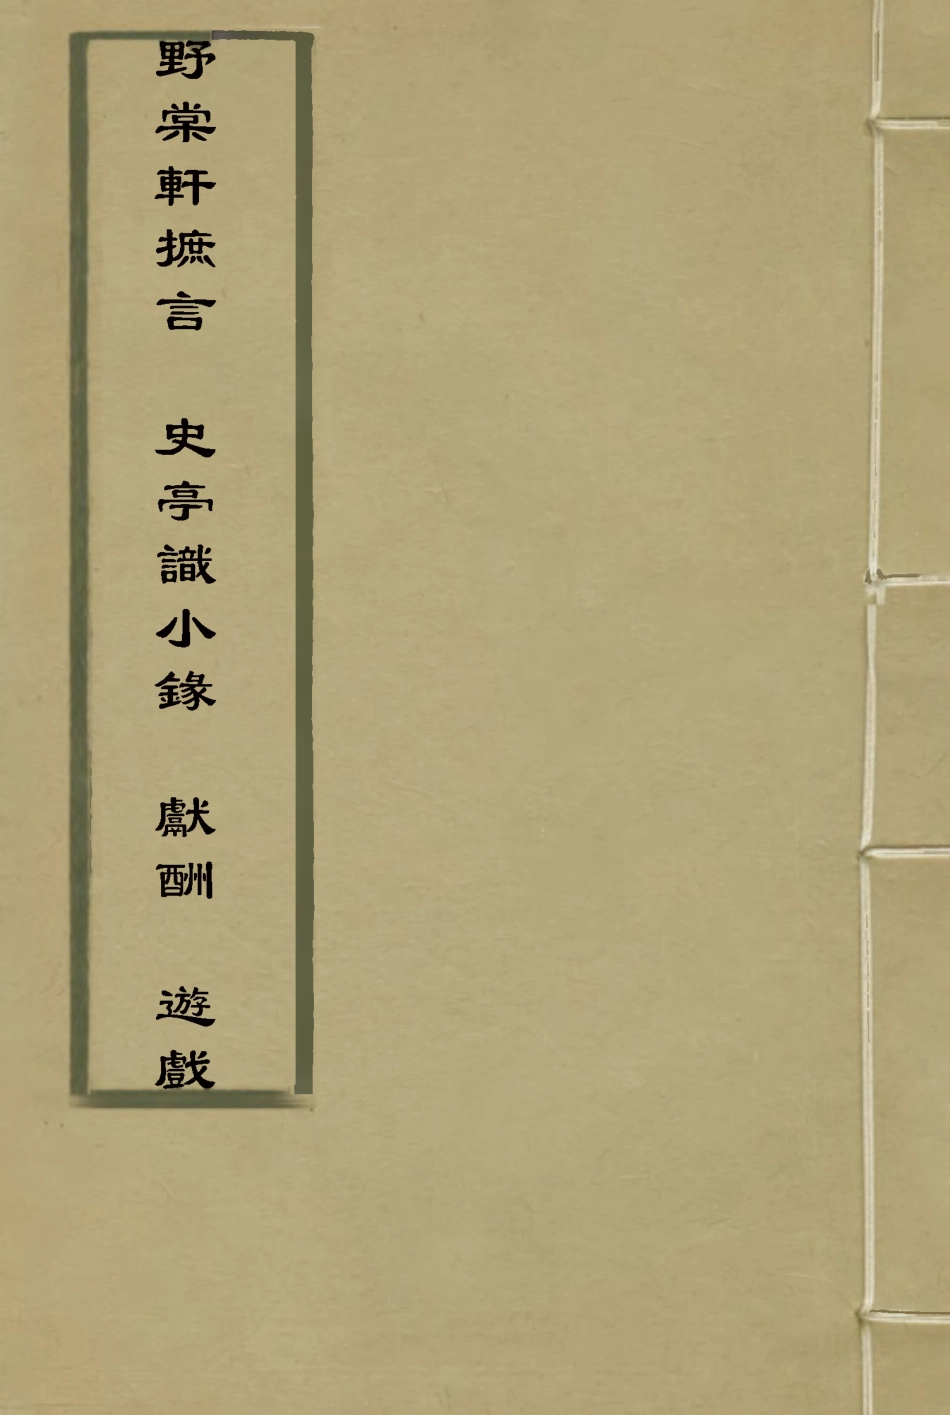 野棠軒摭言　史亭識小錄　獻酬　遊戲